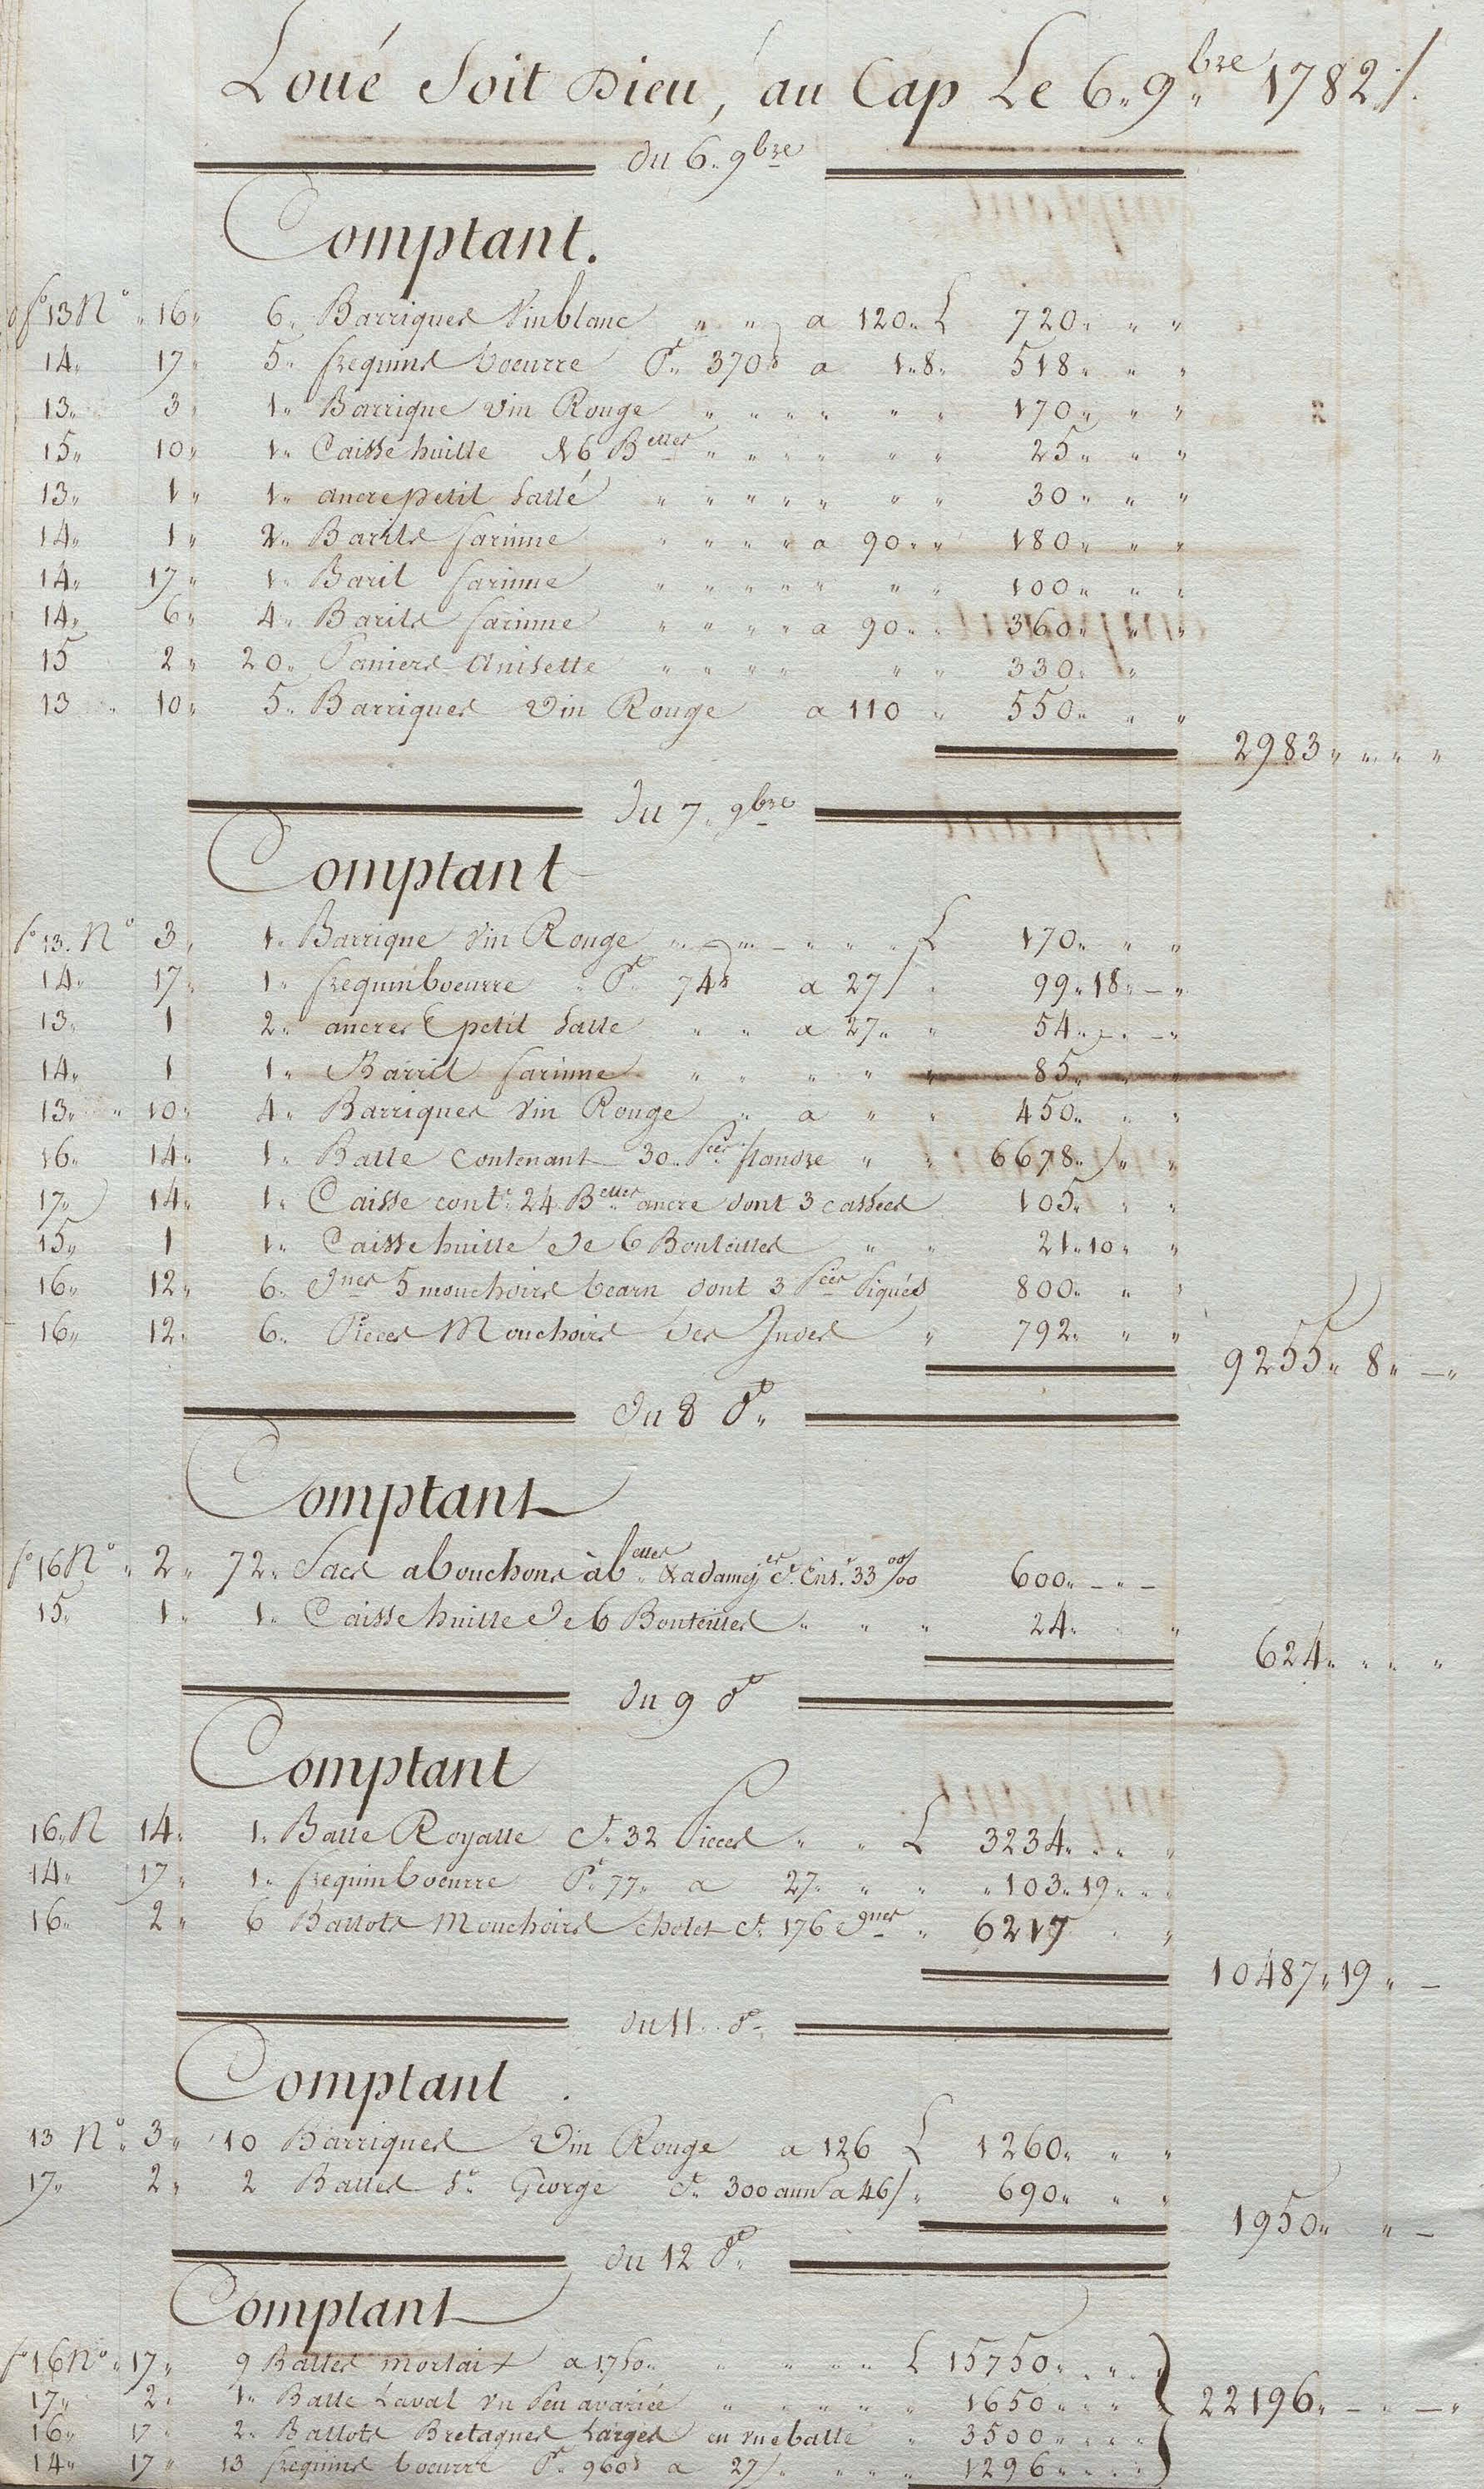 Loué Soit Dieu, au Cap Le 6„ 9bre 1782 /.
du 6„ 9bre
Comptant.
fo 13 No „ 16„ 6„ Barriques Vin blanc „ „ a 120„ L 720„ „ „
14„ 17„ 5„ frequins boeurre Pt 370 a 1„8„ 518„ „ „
13„ 3„ 1„ Barrique Vin Rouge „ „ „ „ „ „ 170„ „ „
15„ 10„ 1„ Caisse huille 16 Belles „ „ „ „ „ „ 25„ „ „
13„ 1„ 1„ ancre petit Sallé „ „ „ „ „ „ „ 30„ „ „
14„ 1„ 2„ Barils farinne „ „ „ „ a 90„ „ 180„ „ „
14„ 17„ 1„ Baril farinne „ „ „ „ „ „ „ 100„ „ „
14„ 6„ 4„ Barils farinne „ „ „ „ a 90„ „ 360„ „ „
15 2„ 20„ Paniers Anisette „ „ „ „ „ „ 330„ „
13 „ 10„ 5„ Barriques Vin Rouge a 110 „ 550„ „ „
2983„ „ „ „
du 7„ 9bre
Comptant
fo 13. No 3„ 1„ Barrique Vin Rouge „ „ „ „ „ L 170„ „ „
14„ 17„ 1„ frequin boeurre „ Pt 74 a 27/ „ 99„18„ – „
13„ 1 2„ ancres petit Salle „ „ a 27„ „ 54„ – „ – „
14„ 1 1„ Barril farinne „ „ „ „ „ 85„ „ „
13„ „ 10„ 4„ Barriques Vin Rouge „ a „ „ 450„ „ „
16„ 14„ 1„ Balle Contenant 30„ Pces flandre „ „ 6678„ „ „
17„ 14„ 1„ Caisse contt 24 Belles ancre dont 3 cassées 105„ „ „
15„ 1 1„ Caisse huille de 6 Bouteilles „ „ 21„10„ „
16„ 12„ 6„ Dnes 5 mouchoirs bearn dont 3 Pces Piqués 800„ „ „
16„ 12„ 6„ Pieces Mouchoirs des Indes „ 792„ „ „
9255„ 8„ –„
du 8 do„
Comptant
fo 16 No „ 2„ 72„ Sacs a bouchons à belles Ens. 33 600„ – „ –
15„ 1„ 1„ Caisse huille de 6 Bouteilles „ „ „ 24„ „
624„ „ „ „
du 9 do
Comptant
16„ N 14„ 1„ Balle Royalle Ct 32 Pieces „ „ L 3234„ „ „ „
14„ 17„ 1„ frequin boeurre Pt 77„ a 27„ „ „ „ 103„19„ „ „
16„ 2„ 6 Ballots Mouchoirs Cholet Ct 176 Dnes „ 6217 „ „
10487„19„ –
du 11„ do
Comptant .
13 No „ 3„ 10 Barriques Vin Rouge a 126 L 1260„ „ „
17„ 2„ 2 Balles St George Ct 300 aun a 46/„ 690„ „ „
1950„ „ –
du 12 do„
Comptant
fo 16 No „ 17„ 9 Balles Morlaix a 1750„ „ „ „ „ L 15750„ „ „ „
17„ 2„ 1„ Balle Laval un Peu avariée „ „ „ „ „ „ 1650„ „ „
22196„ – „ – „
16„ 17„ 2„ Ballots Bretagnes Larges en une balle „ 3500„ „ „ „
14„ 17„ 13 frequins boeurre Pt 960 a 27/„ „ „ „ 1296„ „ „ „